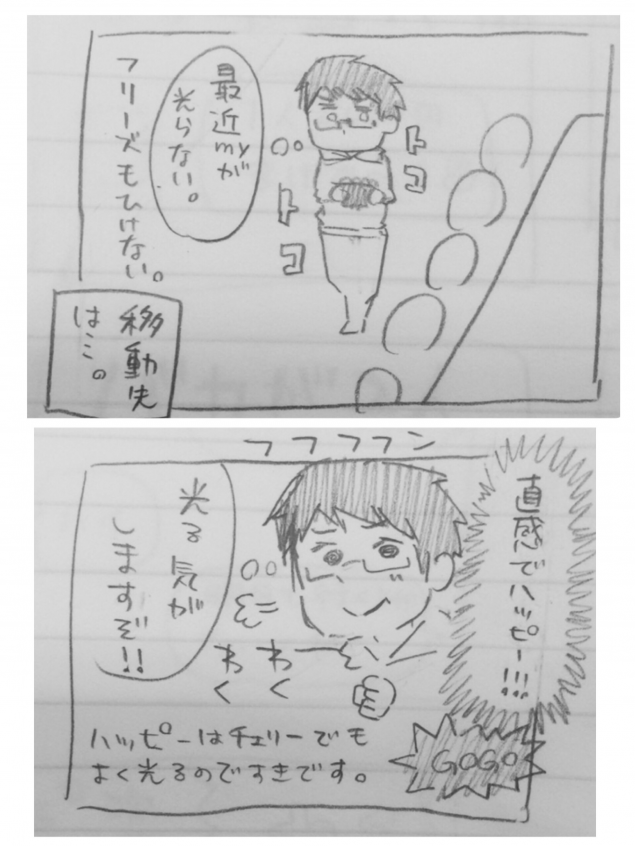 最近myが
光らない。
フリーズもひけない。
トコ
トコ
移動先
は…。
フフフフン
直感でハッピー!!!
光る気が
しますぞ!!
わく
わく
GOGO
ハッピーはチェリーでも
よく光るのですきです。